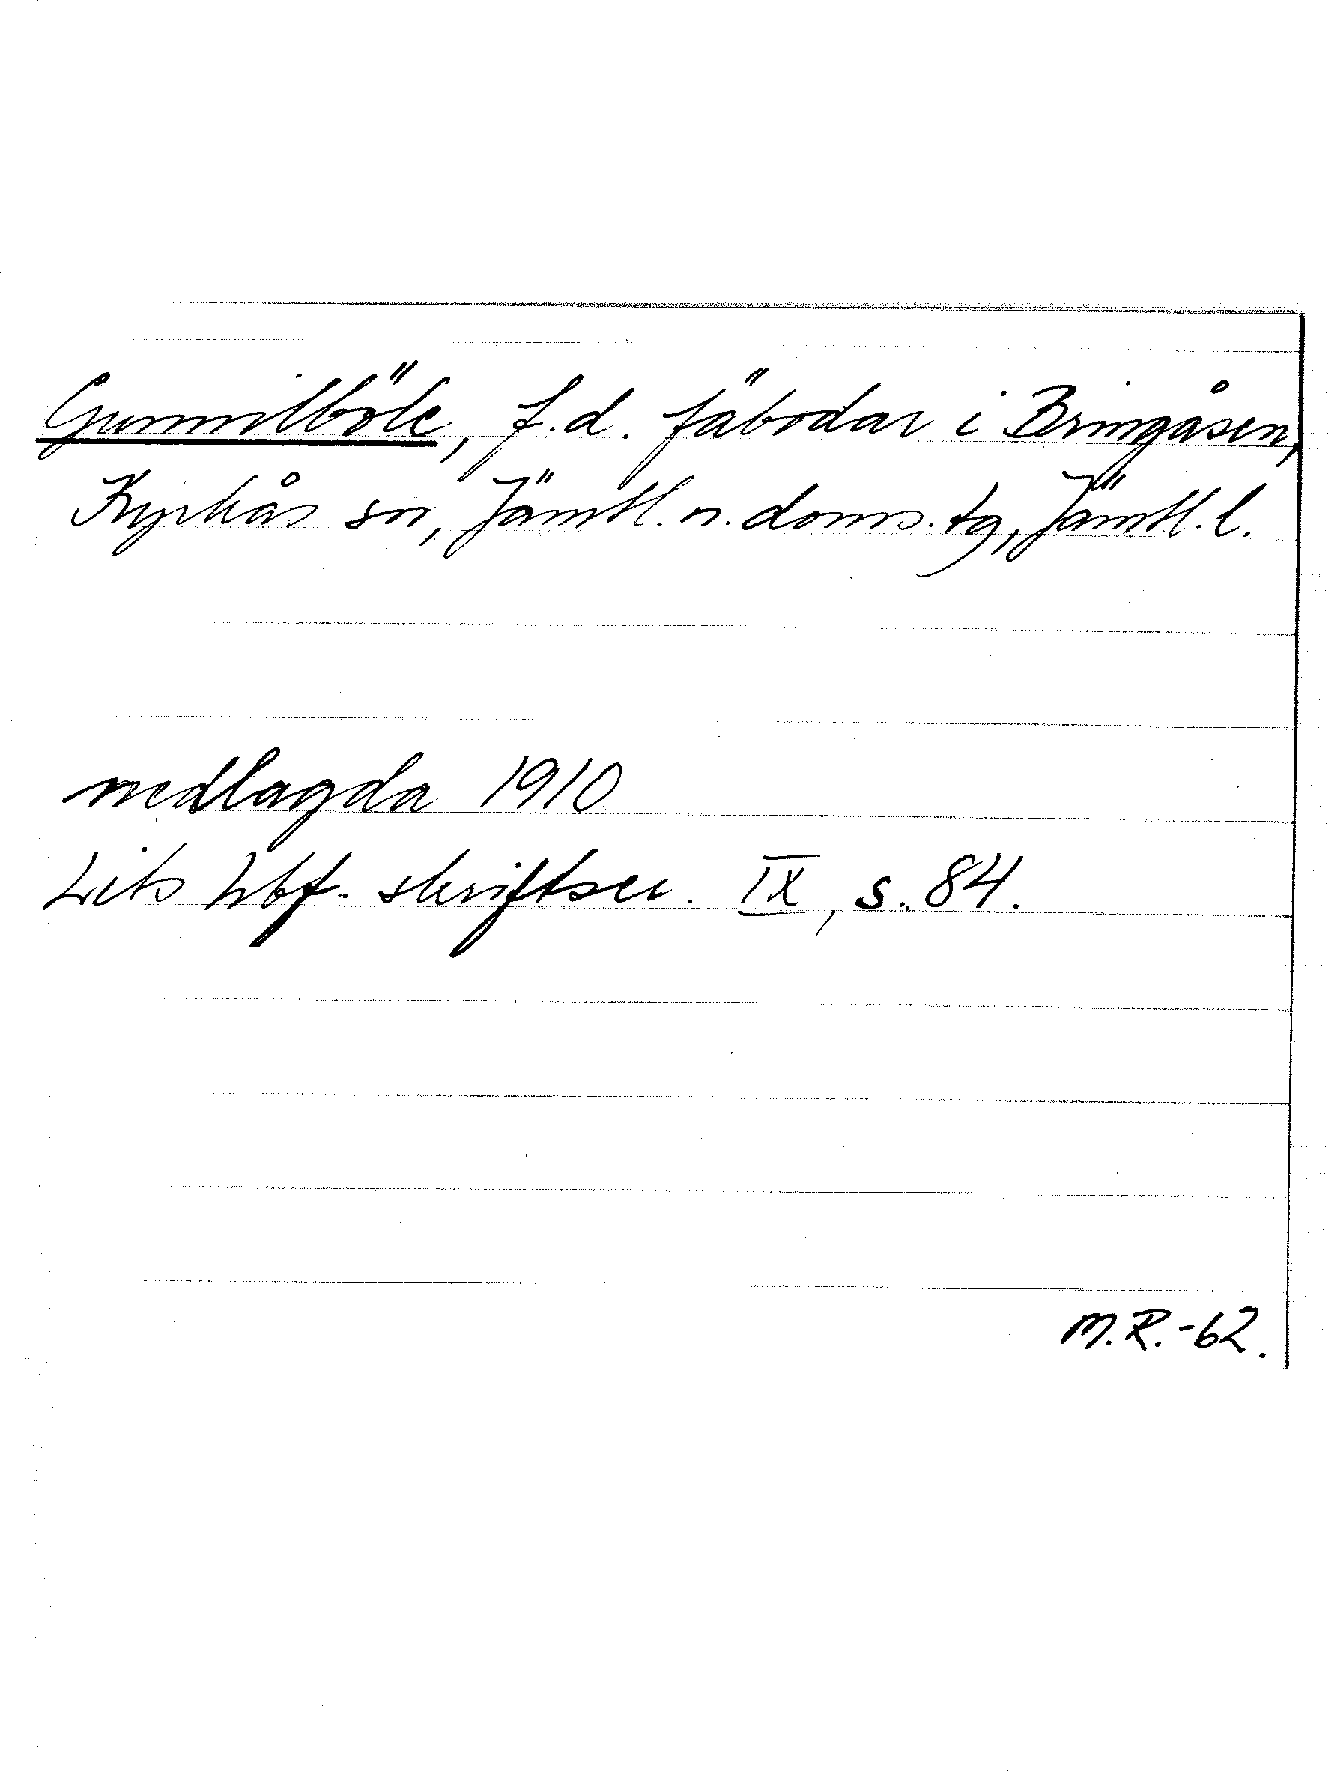 Gunnilböle, f.d. fäbodar i Bringåsen,
Kyrkås sn, Jämtl. n. doms. tg, Jämtl. l.
nedlagda 1910
Lits hbf. skriftser. IX, s. 84.
M.R.-62.